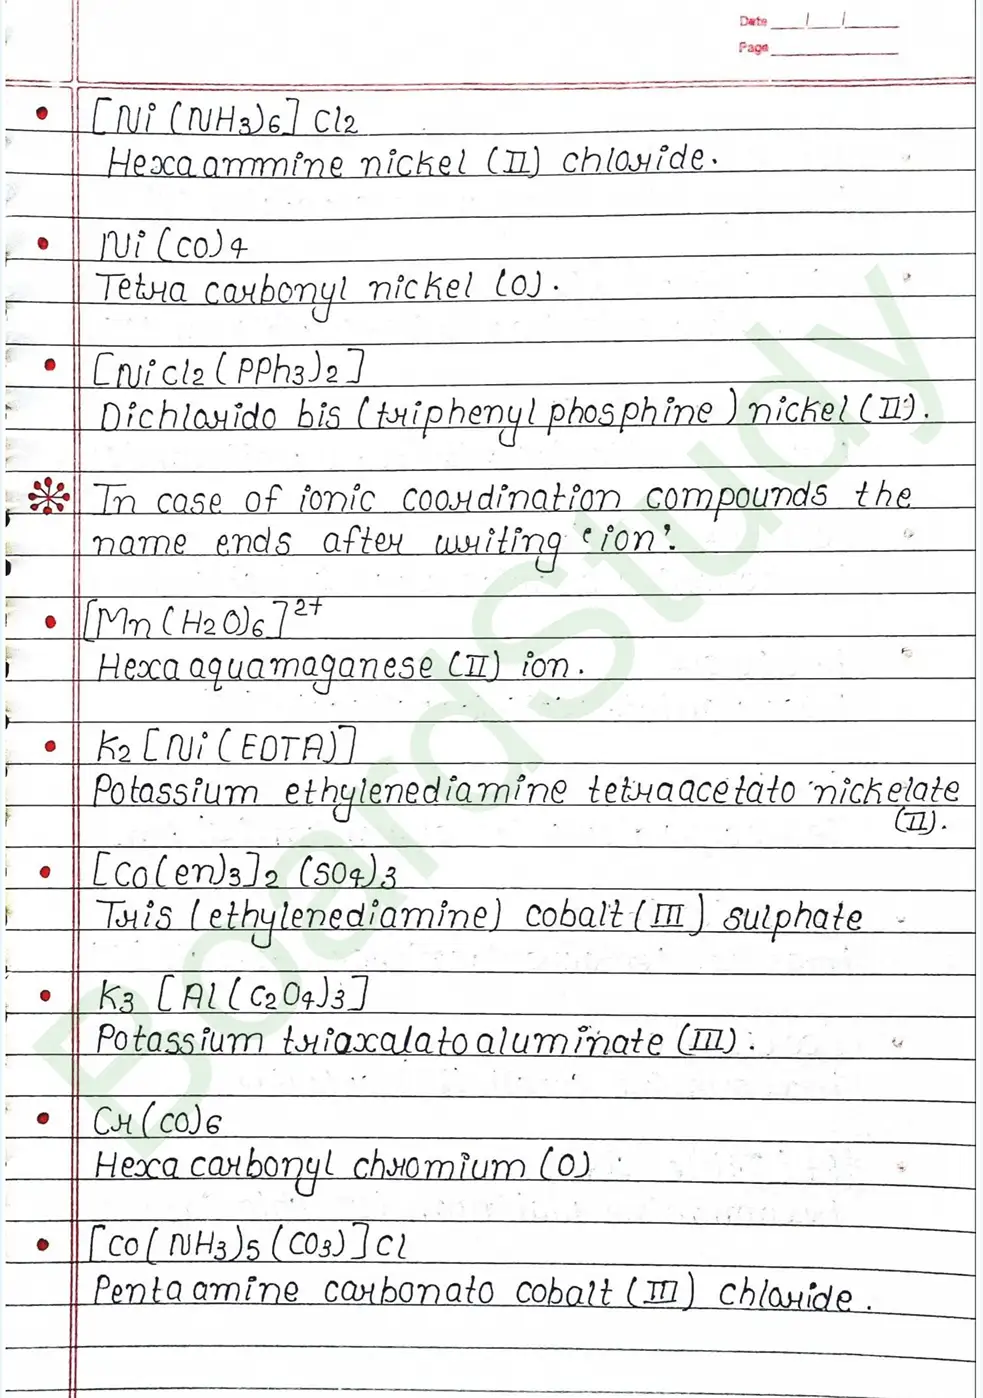 Date
Page
[Ni (NH3)6] Cl2
Hexaammine nickel (II) chloride.
Ni (CO)4
Tetra carbonyl nickel (0).
[NiCl2 (PPh3)2]
Dichlorido bis (triphenyl phosphine) nickel (II).
In case of ionic coordination compounds the
name ends after writing 'ion'.
[Mn (H2O)6]2+
Hexaaquamaganese (II) ion.
K2 [Ni (EDTA)]
Potassium ethylenediamine tetraacetato nickelate
(II).
[Co(en)3]2 (SO4)3
Tris (ethylenediamine) cobalt (III) sulphate
K3 [Al (C2O4)3]
Potassium trioxalatoaluminate (III).
Cr (CO)6
Hexa carbonyl chromium (0)
[Co (NH3)5 (CO3)] Cl
Penta amine carbonato cobalt (III) chloride.
BoardStudy